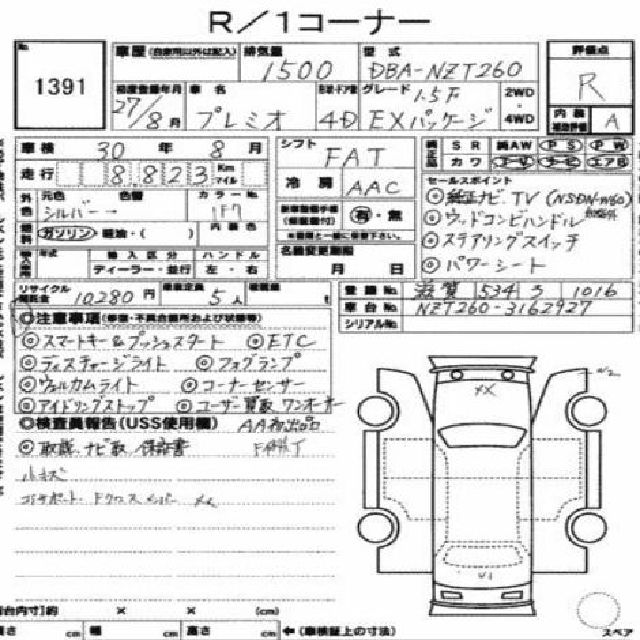 R／1コーナー
No. 1391
車歴 (自家用以外は記入)
排気量 1500
型式 DBA-NZT260
評価点 R
内装 補助評価 A
初度登録年月 27/8月
車名 プレミオ
4D
グレード 1.5F EXパッケージ
2WD ・ 4WD
車検 30 年 8 月
シフト FAT
SR 純AW PS PW
カワ エアB
走行 8823 Km マイル
冷房 AAC
セールスポイント
外色 元色 色替 カラーNo.
シルバー→ 1F7
有・無
◎純正ナビ TV (NSDN-W60)
◎ウッドコンビハンドル
◎ステアリングスイッチ
◎パワーシート
燃料 ガソリン・軽油・( ) 内装色
※書類と一緒に保管下さい。
名義変更期限 月 日
年式 輸入区分 ハンドル
ディーラー・並行 左・右
リサイクル預託金 10280 円 乗車定員 5 人 積載量 t
登録No. 滋賀 534 す 1016
車台No. NZT260-3162927
シリアルNo.
◎注意事項 (修復・不具合箇所および状態等)
◎スマートキー&プッシュスタート ◎ETC
◎ディスチャージライト ◎フォグランプ
◎ウェルカムライト ◎コーナーセンサー
◎アイドリングストップ ◎ユーザー買取 ワンオーナー
◎検査員報告 (USS使用欄) AA初出品
◎取説、ナビ取、保証書
小キズ
コアサポート
XX
(cm)
cm 幅 cm 高さ cm ←(車検証上の寸法)
スペア